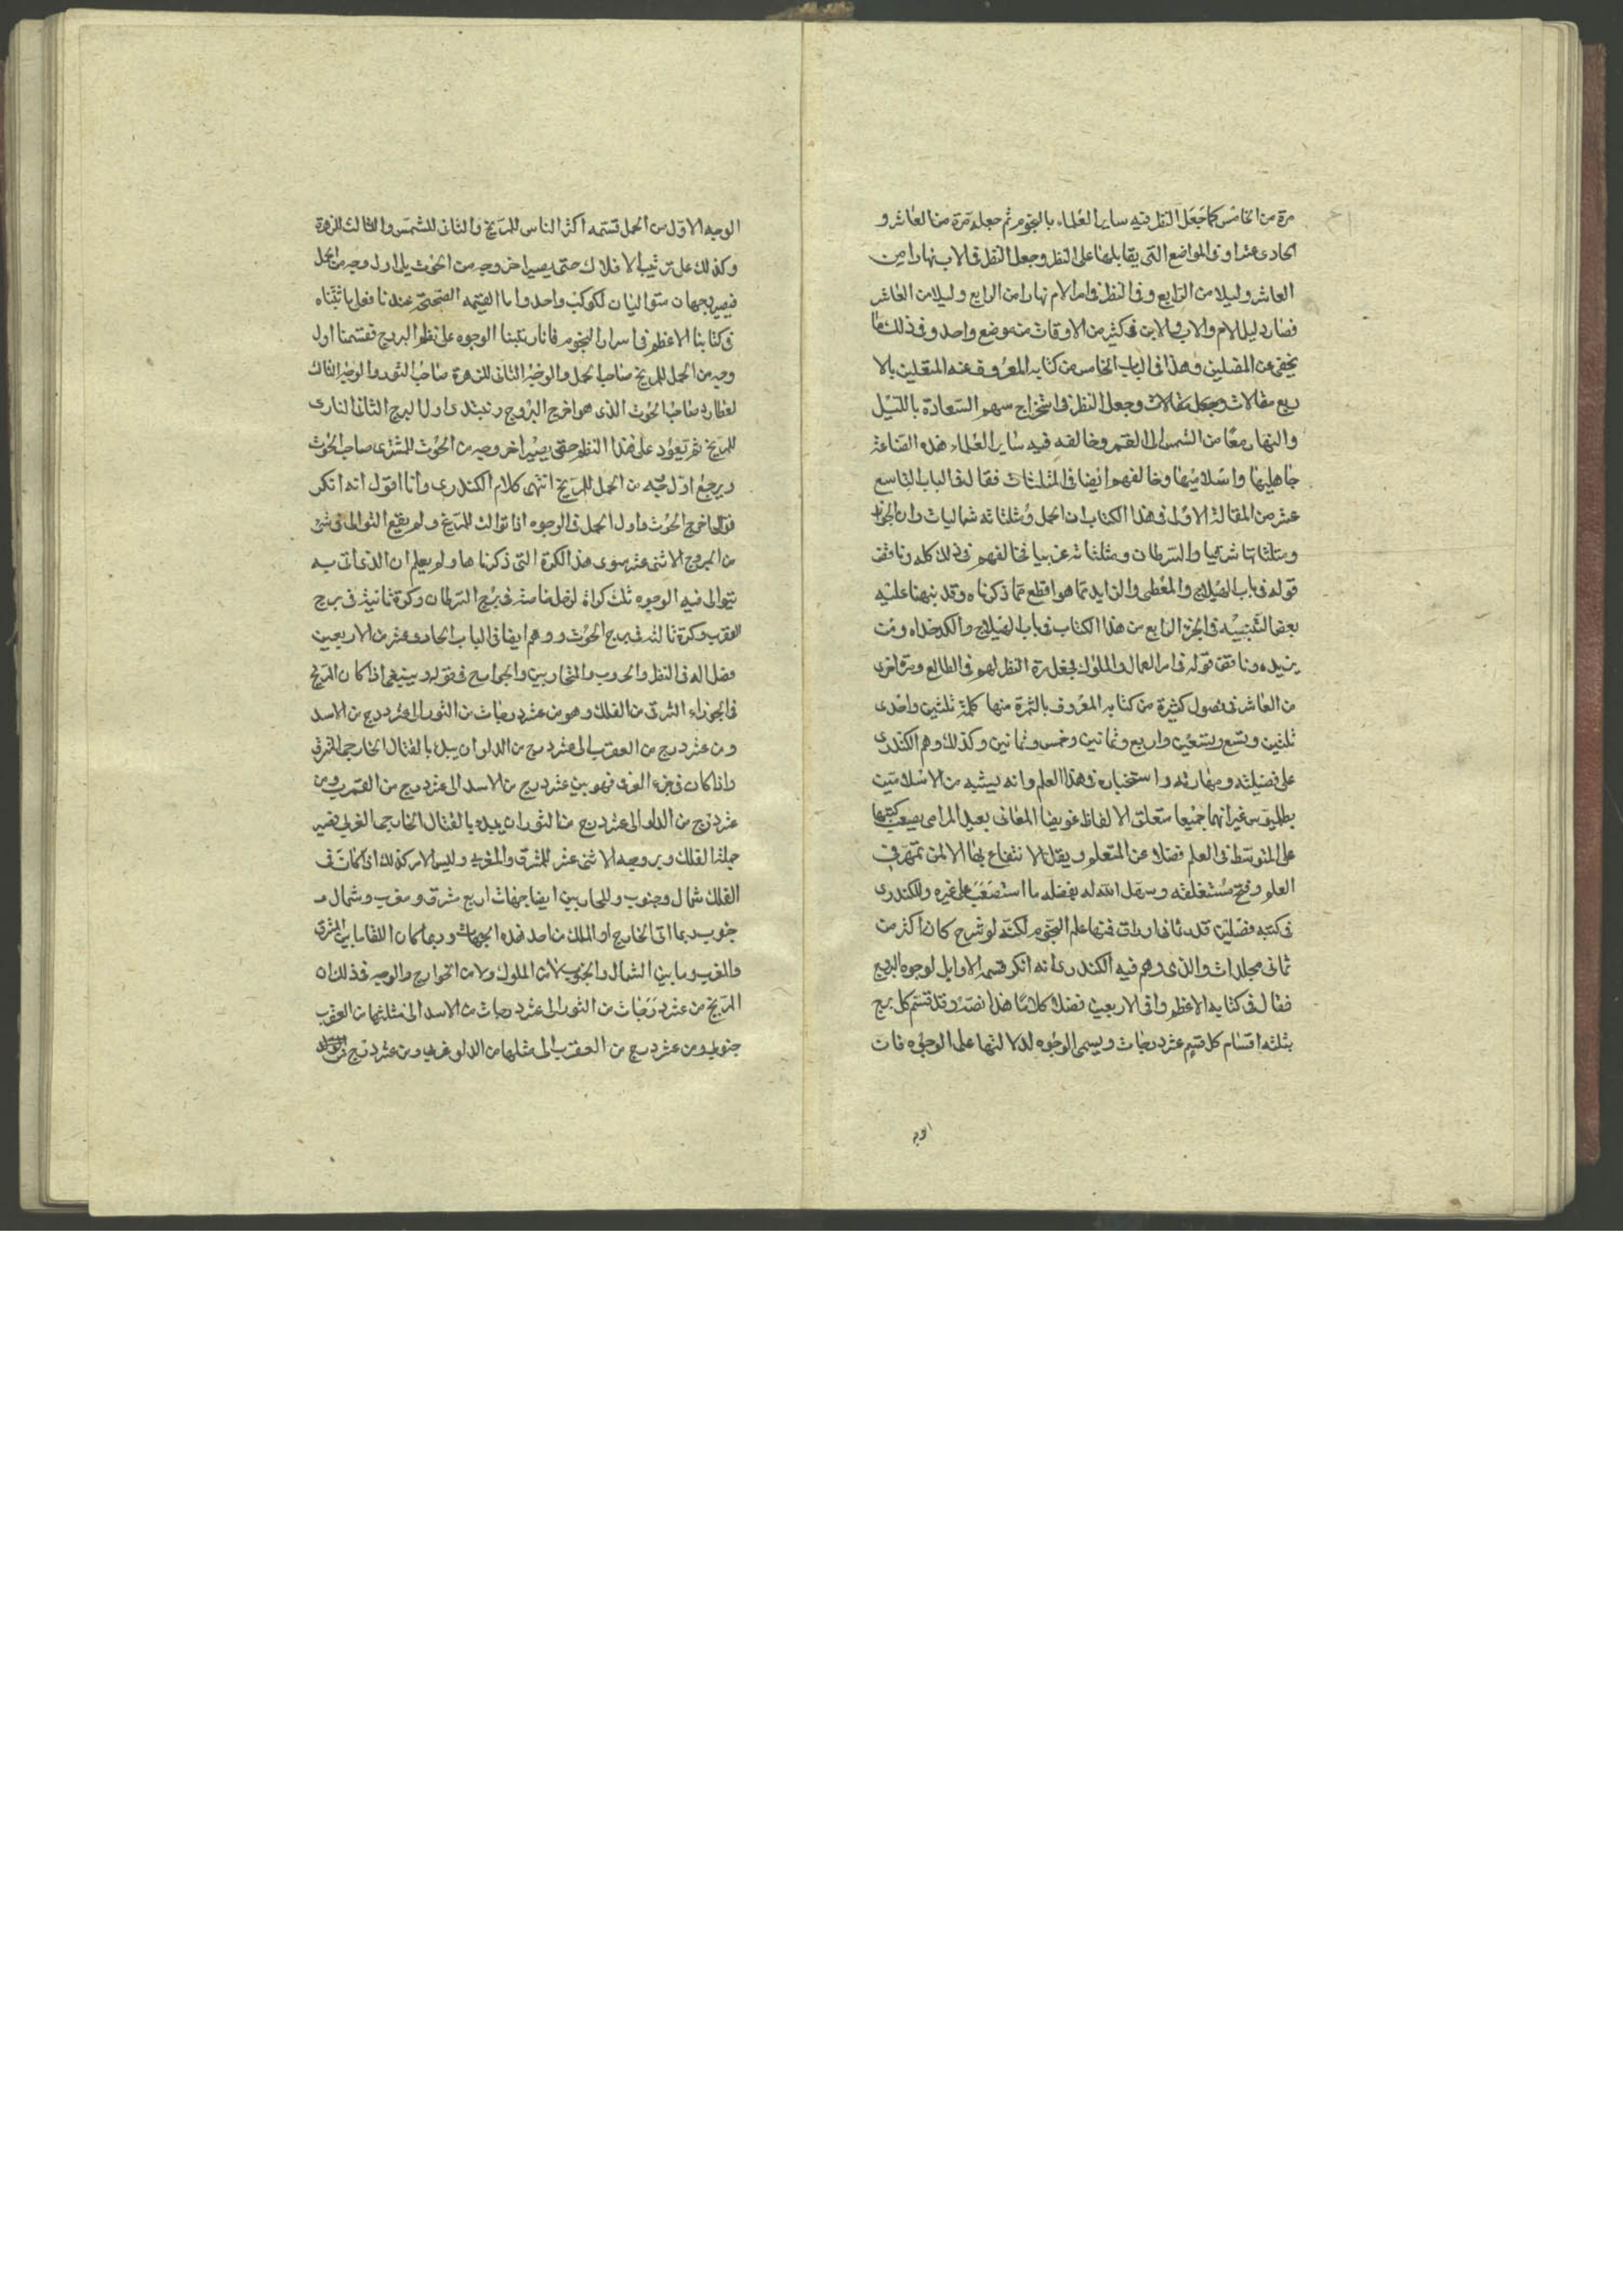 مرة من الخامس كما جعل النظر فيه ساير العلماء بالنجوم ثم جعله مرة من العاشر و
الحادى عشر او فى المواضع التى يقابلها على النظر وجعل النظر فى الاب نهارا من
العاشر وليلا من الرابع وفى النظر فى امر الام نهارا من الرابع وليلا من العاشر
فصار دليل الام والاب والابن فى كثير من الاوقات من موضع واحد وفى ذلك ما
يخفى عن المضلين وهذا فى الباب الخامس من كتابه المعروف عند المنقلين بالا
ربع مقالات وجعل النظر فى استخراج سهم السعادة بالليل
والنهار معا من الشمس الى القمر وخالفه فيه ساير العلماء هذه الصناعة
جاهليها واسلاميها وخالفهم ايضا فى المثلثات فقال فى الباب التاسع
عشر من المقالة الاولى فى هذا الكتاب ان الحمل ومثلثاته شماليات وان الجوزا
ومثلثاتها شرقيا والسرطان ومثلثاته غربيا مخالفهم فى ذلك كله وناقض
قوله فى باب الهيلاج والمعطى والزايد بما هو اقطع مما ذكرناه وقد نبهنا عليه
بعض التنبيه فى الجزء الرابع من هذا الكتاب فى باب الهيلاج والكدخداه ومن
يزيده وناقض قوله فى امر العمال والملوك فجعل مرة النظر لهم فى الطالع ومرة اخرى
من العاشر فى فصول كثيرة من كتابه المعروف بالثمرة منها كلمة ثلثين واحدى
ثلثين وتسع وسبعين واربع وثمانين وخمس وثمانين وكذلك وهم الكندرى
على فضيلته ومهارته واستخباره فى هذا العلم وانه يشبه من الاسلاميين
بطلميوس غير انهما جميعا متعلق الالفاظ عويصا المعانى بعيد المرامى يصعب كتبهما
على المتوسط فى العلم فضلا عن المتعلم ويقل الانتفاع بها الا لمن تمهر فى
العلم وفتح مستغلقه وسهل الله له بفضله ما استصعب على غيره وللكندرى
فى كتبه فصلين علم النجوم لكنه لو شرح كان اكثر من
ثمانى مجلدات والذى وهم فيه الكندرى انه انكر قسمة الاوايل لوجوه البروج
فقال فى كتابه الاعظم وافى الاربعين فصلا كلاما هذا نصه وقد تقسم كل برج
بثلثه اقسام كل قسم عشر درجات ويسمى الوجوه لدلالتها على الوجوه فان
الوجه
الوجه الاول من الحمل قسمه اكثر الناس للمريخ والثانى للشمس والثالث للزهرة
وكذلك على ترتيب الافلاك حتى يصير اخر وجه من الحوت يلى اول وجه من الحمل
فيصير وجهان متواليان لكوكب واحد واما القسمه الصحيحة عندنا فعلى ما ثبتناه
فى كتابنا الاعظم فى اسرار النجوم فانا رتبنا الوجوه على نظم البروج فقسمنا اول
وجه من الحمل للمريخ صاحب الحمل والوجه الثانى للزهرة صاحب الثور والوجه الثالث
لعطارد صاحب الحوت الذى هو اخر البروج ونبتدى اول البرج الثانى النارى
للمريخ ثم يعود على هذا النظم حتى يصير اخر وجه من الحوت للمشترى صاحب الحوت
ويرجع اول وجه من الحمل للمريخ انتهى كلام الكندرى وانا اقول انه انكر
توالى اخر برج الحوت واول الحمل فى الوجوه اذا توالت للمريخ ولم يقع التوالى فى شئ
من البروج الاثنى عشر سوى هذه الكرة التى ذكرناها ولم يعلم ان الذى اتى به
تتوالى فيه الوجوه ثلث كرات لزحل خاصة فى برج السرطان وكرة ثانية فى برج
العقرب وكرة ثالثة فى برج الحوت ووهم ايضا فى الباب الحادى عشر من الاربعين
فصلا له فى النظر والحروب والمتحاربين والجوامح فى قوله وينبغى اذا كان المريخ
فى الجزاء الشرقى من الفلك وهو من عشر درجات من الثور الى عشر درج من الاسد
ومن عشر درج من العقرب الى عشر درج من الدلو ان يبدا بالقتال الخارج الشرقى
واذا كان فى جزء الغربى فهو بين عشر درج من الاسد الى عشر درج من العقرب ومن
عشر درج من الدلو الى عشر درج من الثور ان يبداء بالقتال الخارج الغربى فصير
جملة الفلك وبروجه الاثنى عشر للمشرق والمغرب وليس الامر كذلك اذا كان فى
الفلك شمال وجنوب وللمحاربين ايضا جهات اربع مشرق ومغرب وشمال و
جنوب ربما اتى الخارج او الملك من احد هذه الجهات وربما كان اللقا ما بين المشرق
والمغرب وما بين الشمال والجنوب لان الملوك ولا من الخوارج والوجه فى ذلك ان
المريخ من عشر درجات من الثور الى عشر درجات من الاسد الى مثلثها من العقرب
جنوبى ومن عشر درج من العقرب الى مثلها من الدلو غربى ومن عشر درج من الدلو